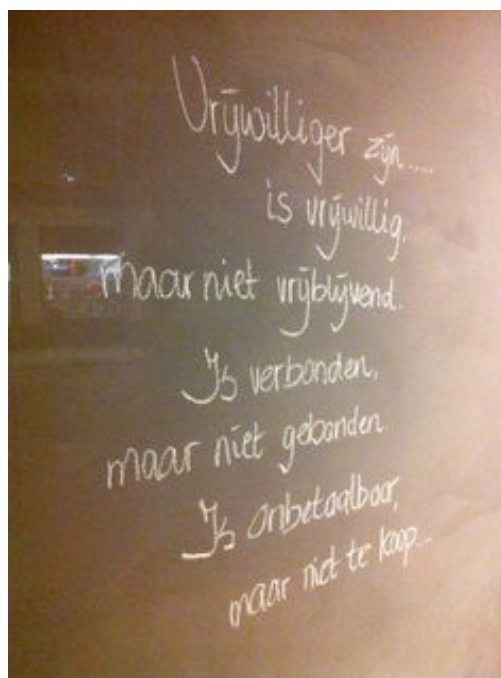 Vrijwilliger zijn....
is vrijwillig,
maar niet vrijblijvend.
Is verbonden,
maar niet gebonden.
Is onbetaalbaar,
maar niet te koop...